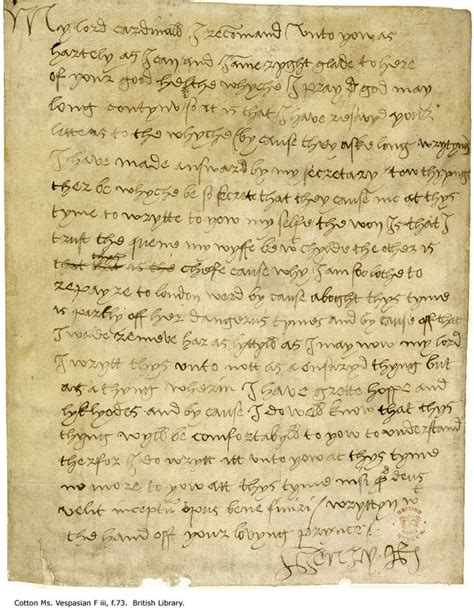 My lord cardinall I recomand unto yow as
hartely as I can and I am ryght glade to here
of your good helthe whyche I pray god may
long contynu so it is that I have resayvyd your
letters to the whyche (by cause they aske long wrytyng
I have made answar by my secretary tow thyngs
ther be whyche be so secret that they cause me at thys
tyme to wrytte to yow my selfe the won is that I
trust the quene my wyffe be wt chylde the other is
chefe cause why I am so lothe to
repayre to london ward by cause aboght thys tyme
is partly off her dangerus tymes and by cause off that
I wolde remeve har as lyttyll as I may now my lord
I wrytt thys unto nott as a ensuryd thyng but
as a thyng wherin I have grette hoppe and
lyklyodes and by cause I do well know that thys
thyng wylbe comfortabyll to yow to understand
therfor I do wrytt itt unto yow at thys tyme
no more to yow att thys tyme nisi quod deus
velit inceptum opus bene finiri wryttyn wt
the hand off your lovyng prynce
Henry R
Cotton Ms. Vespasian F iii, f.73. British Library.